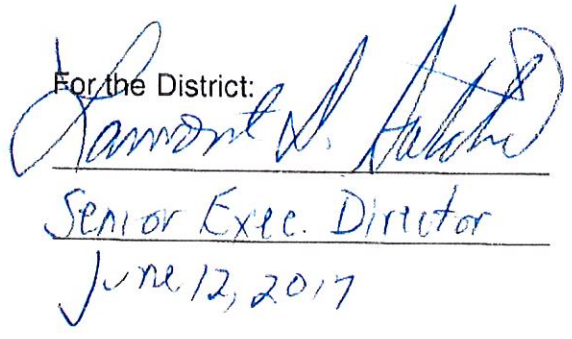 For the District:
Lamont D.
Senior Exec. Director
June 12, 2017